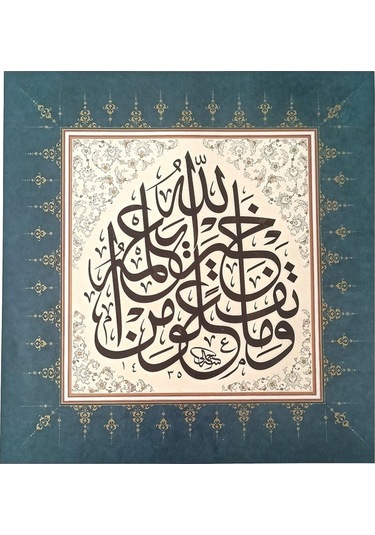 وما تفعلوا من خير يعلمه الله
١٤٣٥